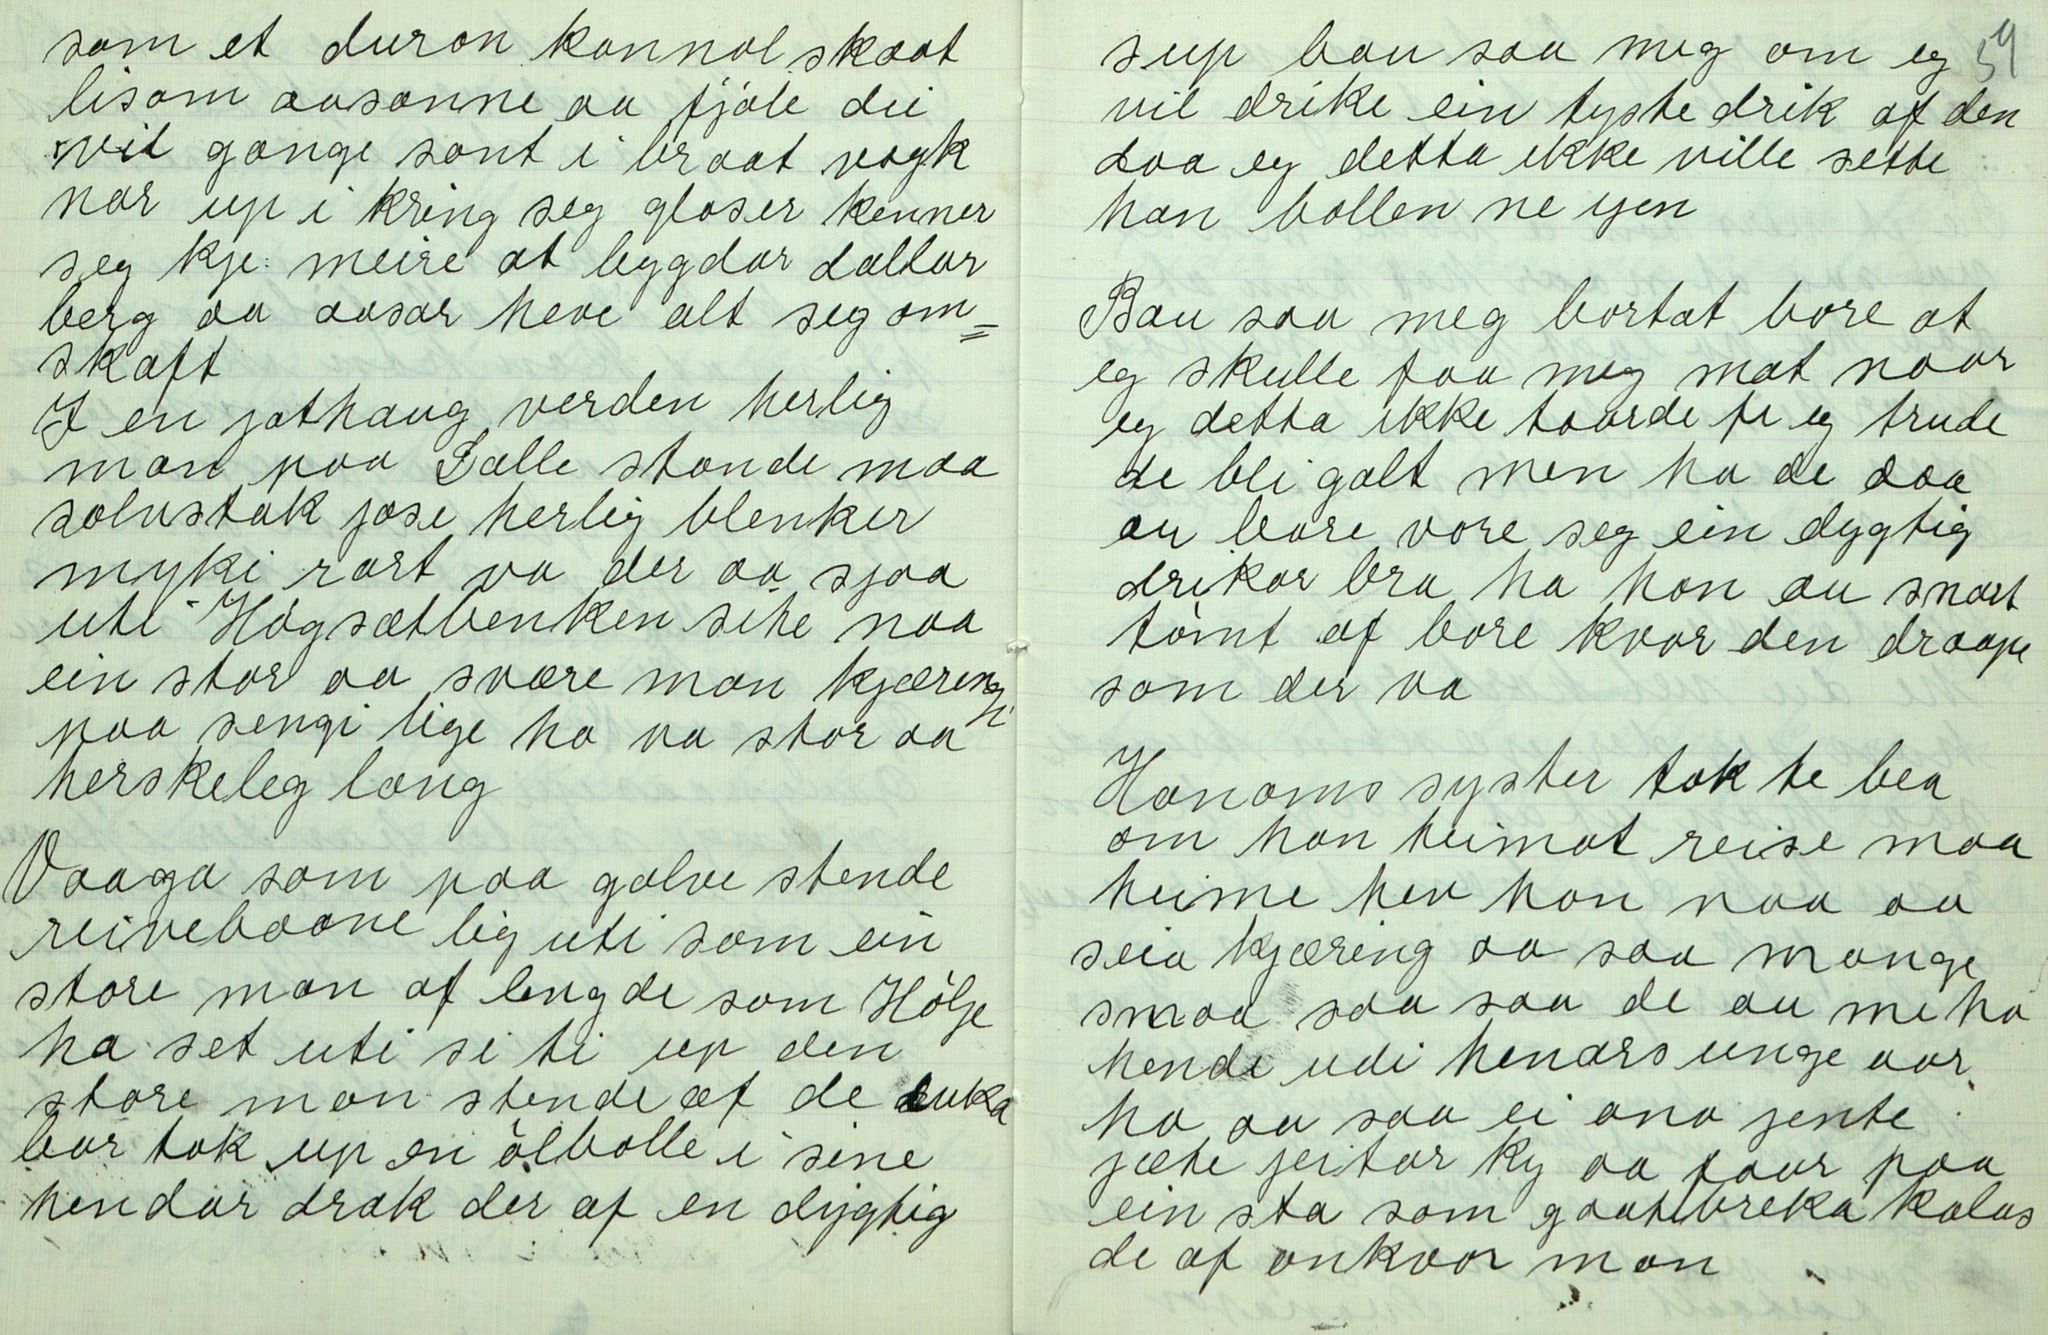 som et duron kannol skaat
lisom aasanne aa fjöle dei
vil gange sont i braat vagk
nar up i kring seg gloser kenner
seg kje meire at bygdar daltar
berg aa aasar heve alt seg om=
skaft
I en jothaug verden herlig
man paa Pælle stande maa
solvstak jose herlig blenker
myki rart va der aa sjaa
uti Högsætbenken site naa
ein stor aa svære man kjæringi
paa sengi lige ho va stor aa
herskeleg lang
Vaaga som paa golve stende
reivebaane lig uti som ein
store man af lengde som Hölje
ha set uti si ti up den
store man stende af de duka
bor tok up en ölbolle i sine
hendar drak der af en dygtig
sup bau saa meg om eg 54
vil drike ein tyste drik af den
daa eg detta ikke ville sette
han bollen ne igen
Bau saa meg bortat bore at
eg skulle faa meg mat naar
eg detta ikke taarde fr eg trude
de bli galt men ha de daa
au bare vore seg ein dygtig
drikar bra ha han au snart
tömt af bore kvar den draape
som der va
Hanoms syster tok te bea
om han heimat reise maa
heime hev han naa aa
seia kjæring aa saa mange
smaa saa saa de au me ho
hende udi henars unge aar
ho au saa ei ana jente
jæte jeitar ky aa faar paa
ein sta som gaatebreka kalas
de af ankvar man